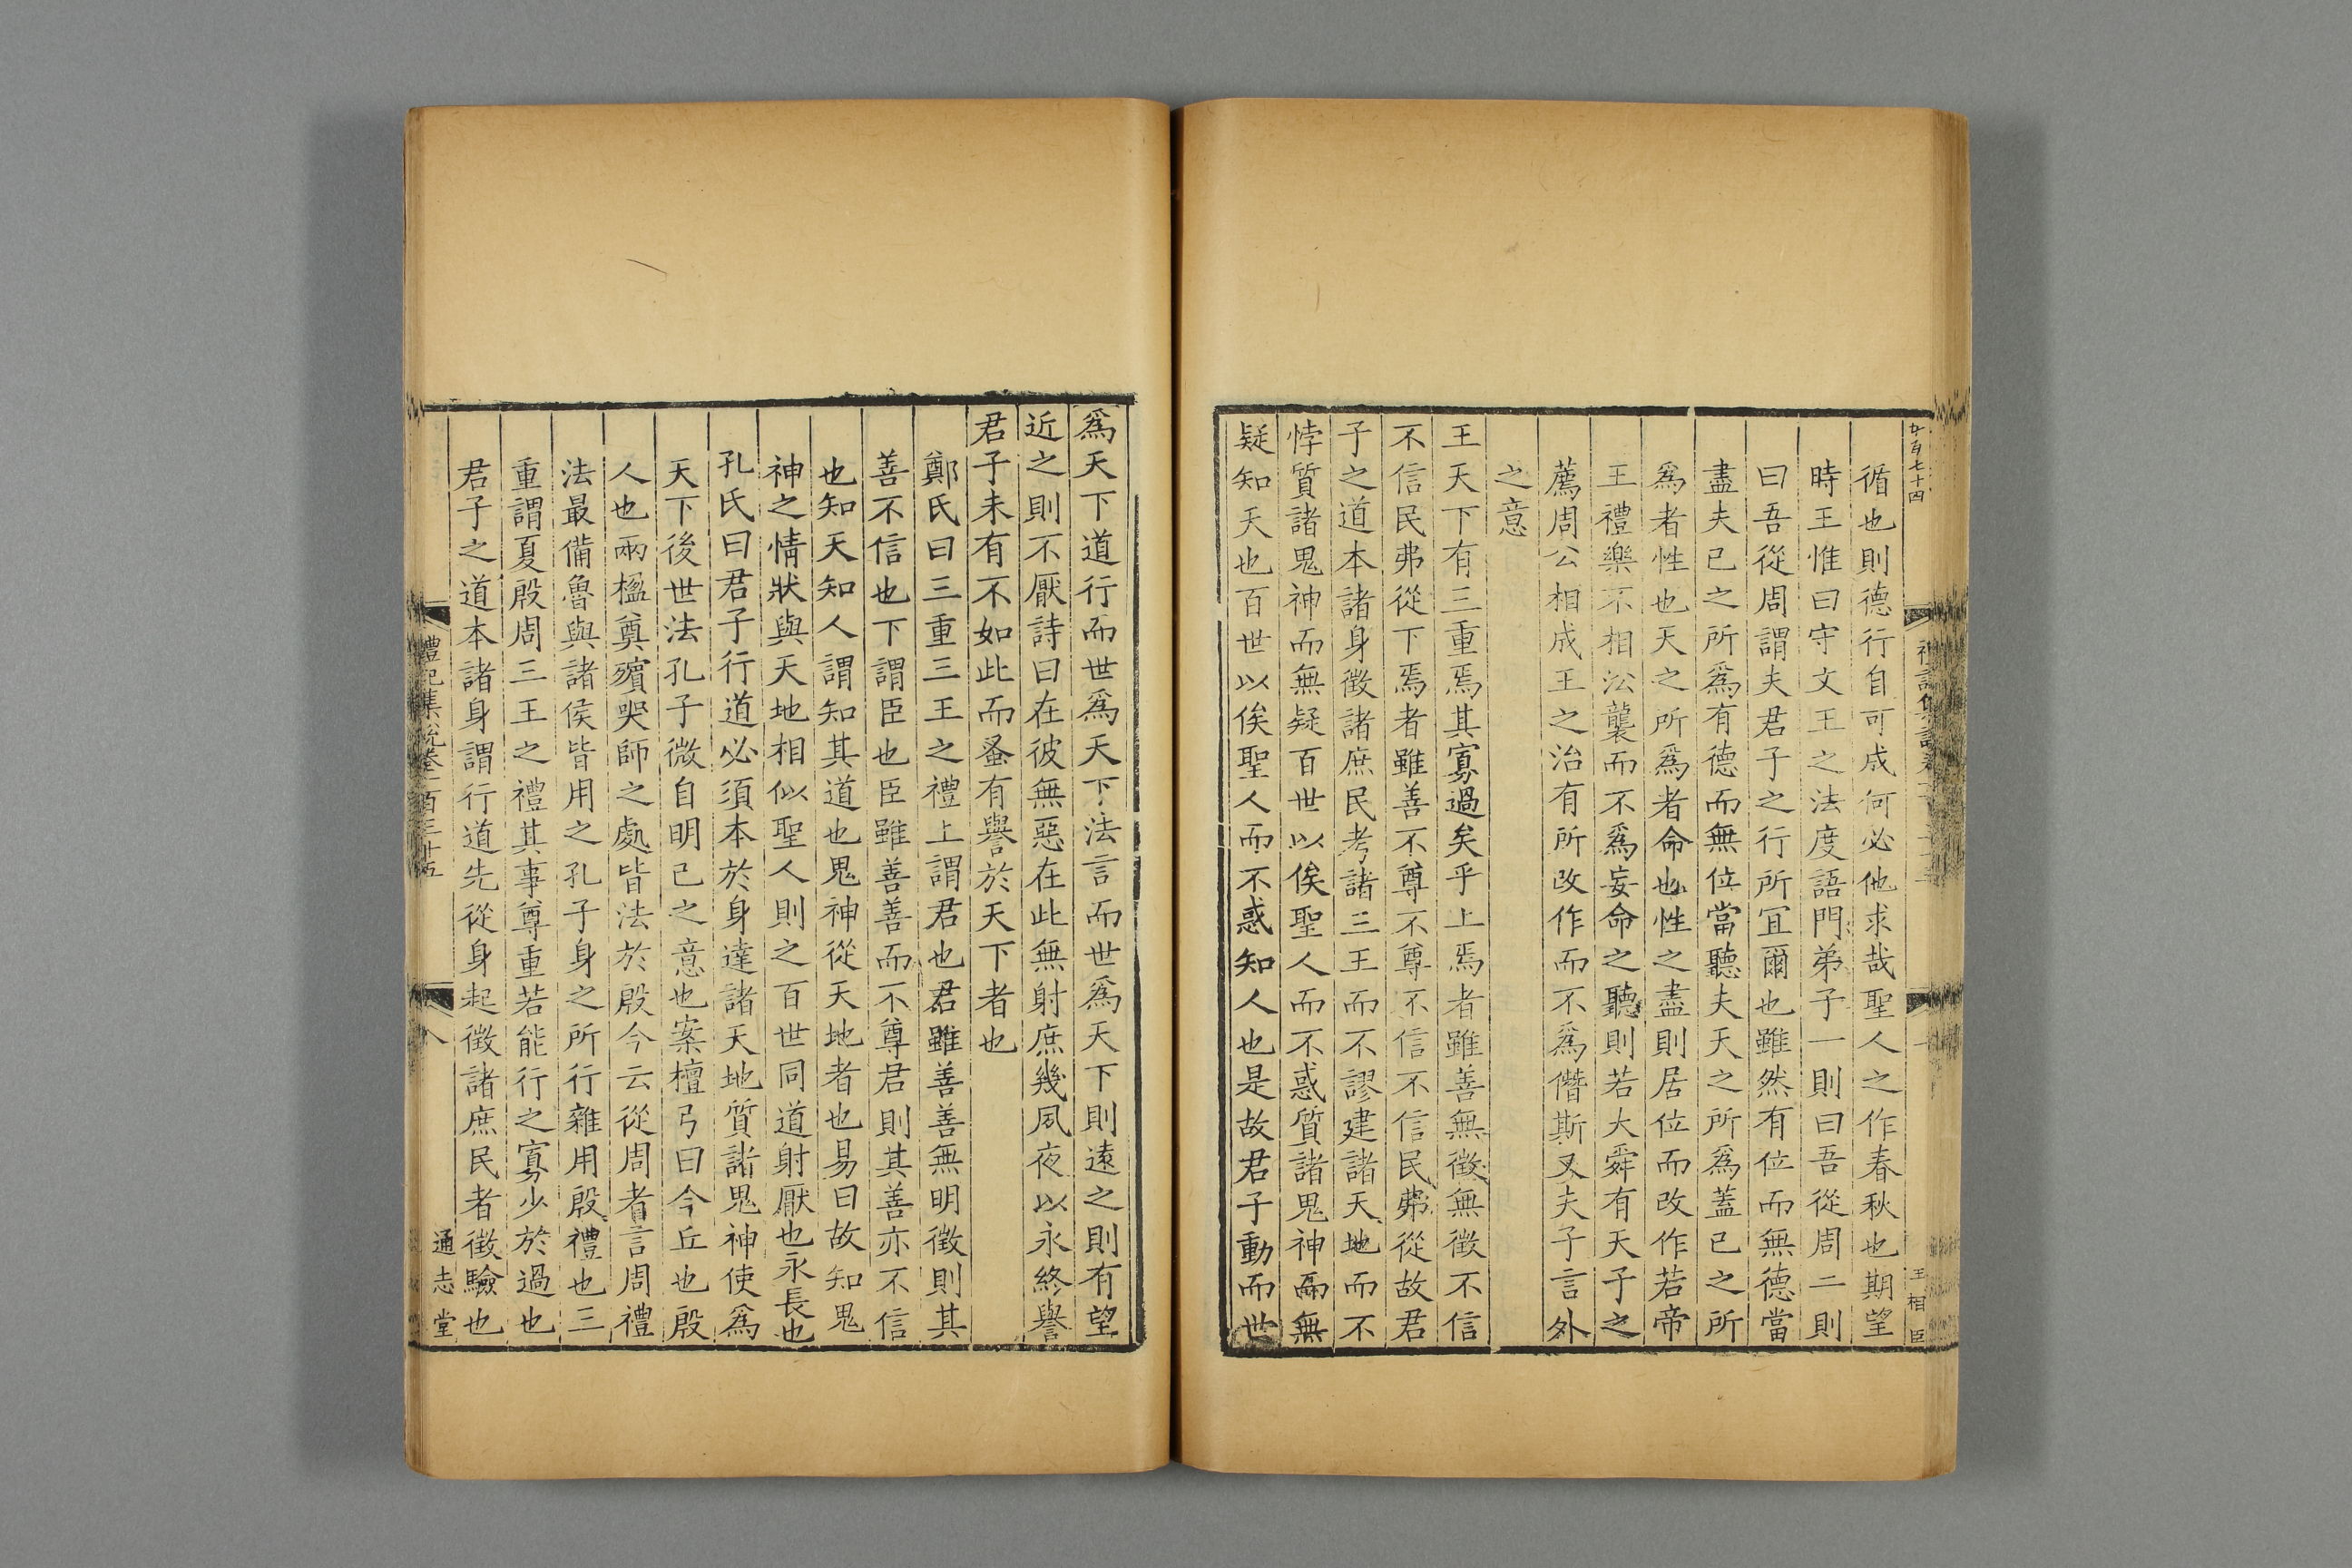 循也則德行自可成何必他求哉聖人之作春秋也期望
時王惟曰守文王之法度語門弟子一則曰吾從周二則
曰吾從周謂夫君子之行所宜爾也雖然有位而無德當
盡夫已之所爲有德而無位當聽夫天之所爲蓋已之所
爲者性也天之所爲者命也性之盡則居位而改作若帝
王禮樂不相沿襲而不爲妄命之聽則若大舜有天子之
薦周公相成王之治有所改作而不爲僭斯又夫子言外
之意
王天下有三重焉其寡過矣乎上焉者雖善無徵無徵不信
不信民弗從下焉者雖善不尊不尊不信不信民弗從故君
子之道本諸身徵諸庶民考諸三王而不謬建諸天地而不
悖質諸鬼神而無疑百世以俟聖人而不惑質諸鬼神而無
疑知天也百世以俟聖人而不惑知人也是故君子動而世
爲天下道行而世爲天下法言而世爲天下則遠之則有望
近之則不厭詩曰在彼無惡在此無射庶幾夙夜以永終譽
君子未有不如此而蚤有譽於天下者也
鄭氏曰三重三王之禮上謂君也君雖善善無明徵則其
善不信也下謂臣也臣雖善善而不尊君則其善亦不信
也知天知人謂知其道也鬼神從天地者也易曰故知鬼
神之情狀與天地相似聖人則之百世同道射厭也永長也
孔氏曰君子行道必須本於身達諸天地質諸鬼神使爲
天下後世法孔子微自明已之意也案檀弓曰今丘也殷
人也兩楹奠殯哭師之處皆法於殷今云從周者言周禮
法最備魯與諸侯皆用之孔子身之所行雜用殷禮也三
重謂夏殷周三王之禮其事尊重若能行之寡少於過也
君子之道本諸身謂行道先從身起徵諸庶民者徵驗也
禮記集說卷一百三十五
八
通志堂